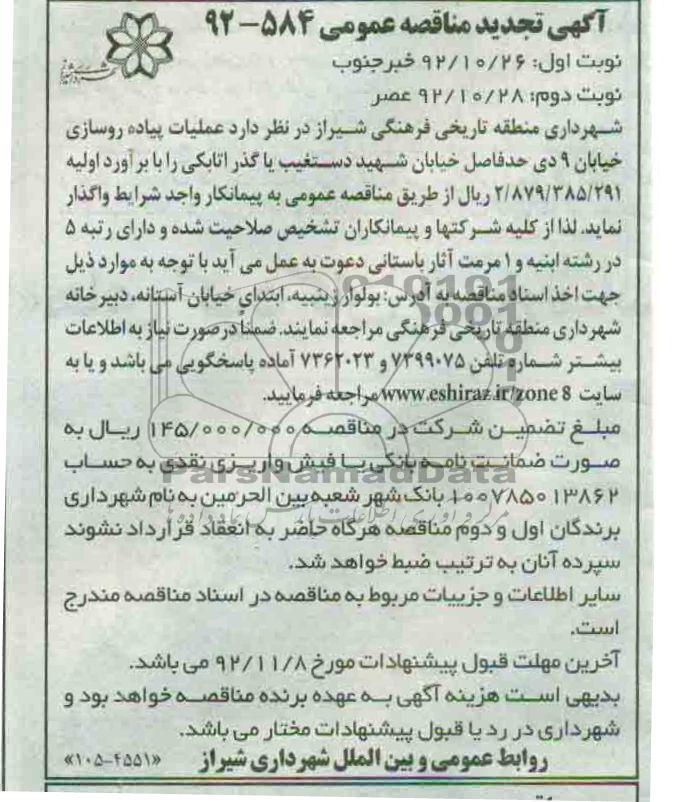 آگهی تجدید مناقصه عمومی ۵۸۴-۹۲
نوبت اول: ۹۲/۱۰/۲۶ خبرجنوب
نوبت دوم: ۹۲/۱۰/۲۸ عصر
شهرداری منطقه تاریخی فرهنگی شیراز در نظر دارد عملیات پیاده روسازی
خیابان ۹ دی حدفاصل خیابان شهید دستغیب یا گذر اتابکی را با برآورد اولیه
۲/۸۷۹/۳۸۵/۲۹۱ ریال از طریق مناقصه عمومی به پیمانکار واجد شرایط واگذار
نماید. لذا از کلیه شرکتها و پیمانکاران تشخیص صلاحیت شده و دارای رتبه ۵
در رشته ابنیه و ۱ مرمت آثار باستانی دعوت به عمل می آید با توجه به موارد ذیل
جهت اخذ اسناد مناقصه به آدرس: بولوار زینبیه، ابتدای خیابان آستانه، دبیرخانه
شهرداری منطقه تاریخی فرهنگی مراجعه نمایند. ضمناً در صورت نیاز به اطلاعات
بیشتر شماره تلفن ۷۳۹۹۰۷۵ و ۷۳۶۲۰۲۳ آماده پاسخگویی می باشد و یا به
سایت www.eshiraz.ir/zone 8 مراجعه فرمایید.
مبلغ تضمین شرکت در مناقصه ۱۴۵/۰۰۰/۰۰۰ ریال به
صورت ضمانت نامه بانکی یا فیش واریزی نقدی به حساب
ParsNamadData
۱۰۰۷۸۵۰۱۳۸۶۲ بانک شهر شعبه بین الحرمین به نام شهرداری
برندگان اول و دوم مناقصه هرگاه حاضر به انعقاد قرارداد نشوند
سپرده آنان به ترتیب ضبط خواهد شد.
سایر اطلاعات و جزییات مربوط به مناقصه در اسناد مناقصه مندرج
است.
آخرین مهلت قبول پیشنهادات مورخ ۹۲/۱۱/۸ می باشد.
بدیهی است هزینه آگهی به عهده برنده مناقصه خواهد بود و
شهرداری در رد یا قبول پیشنهادات مختار می باشد.
روابط عمومی و بین الملل شهرداری شیراز «۱۰۵-۴۵۵۱»